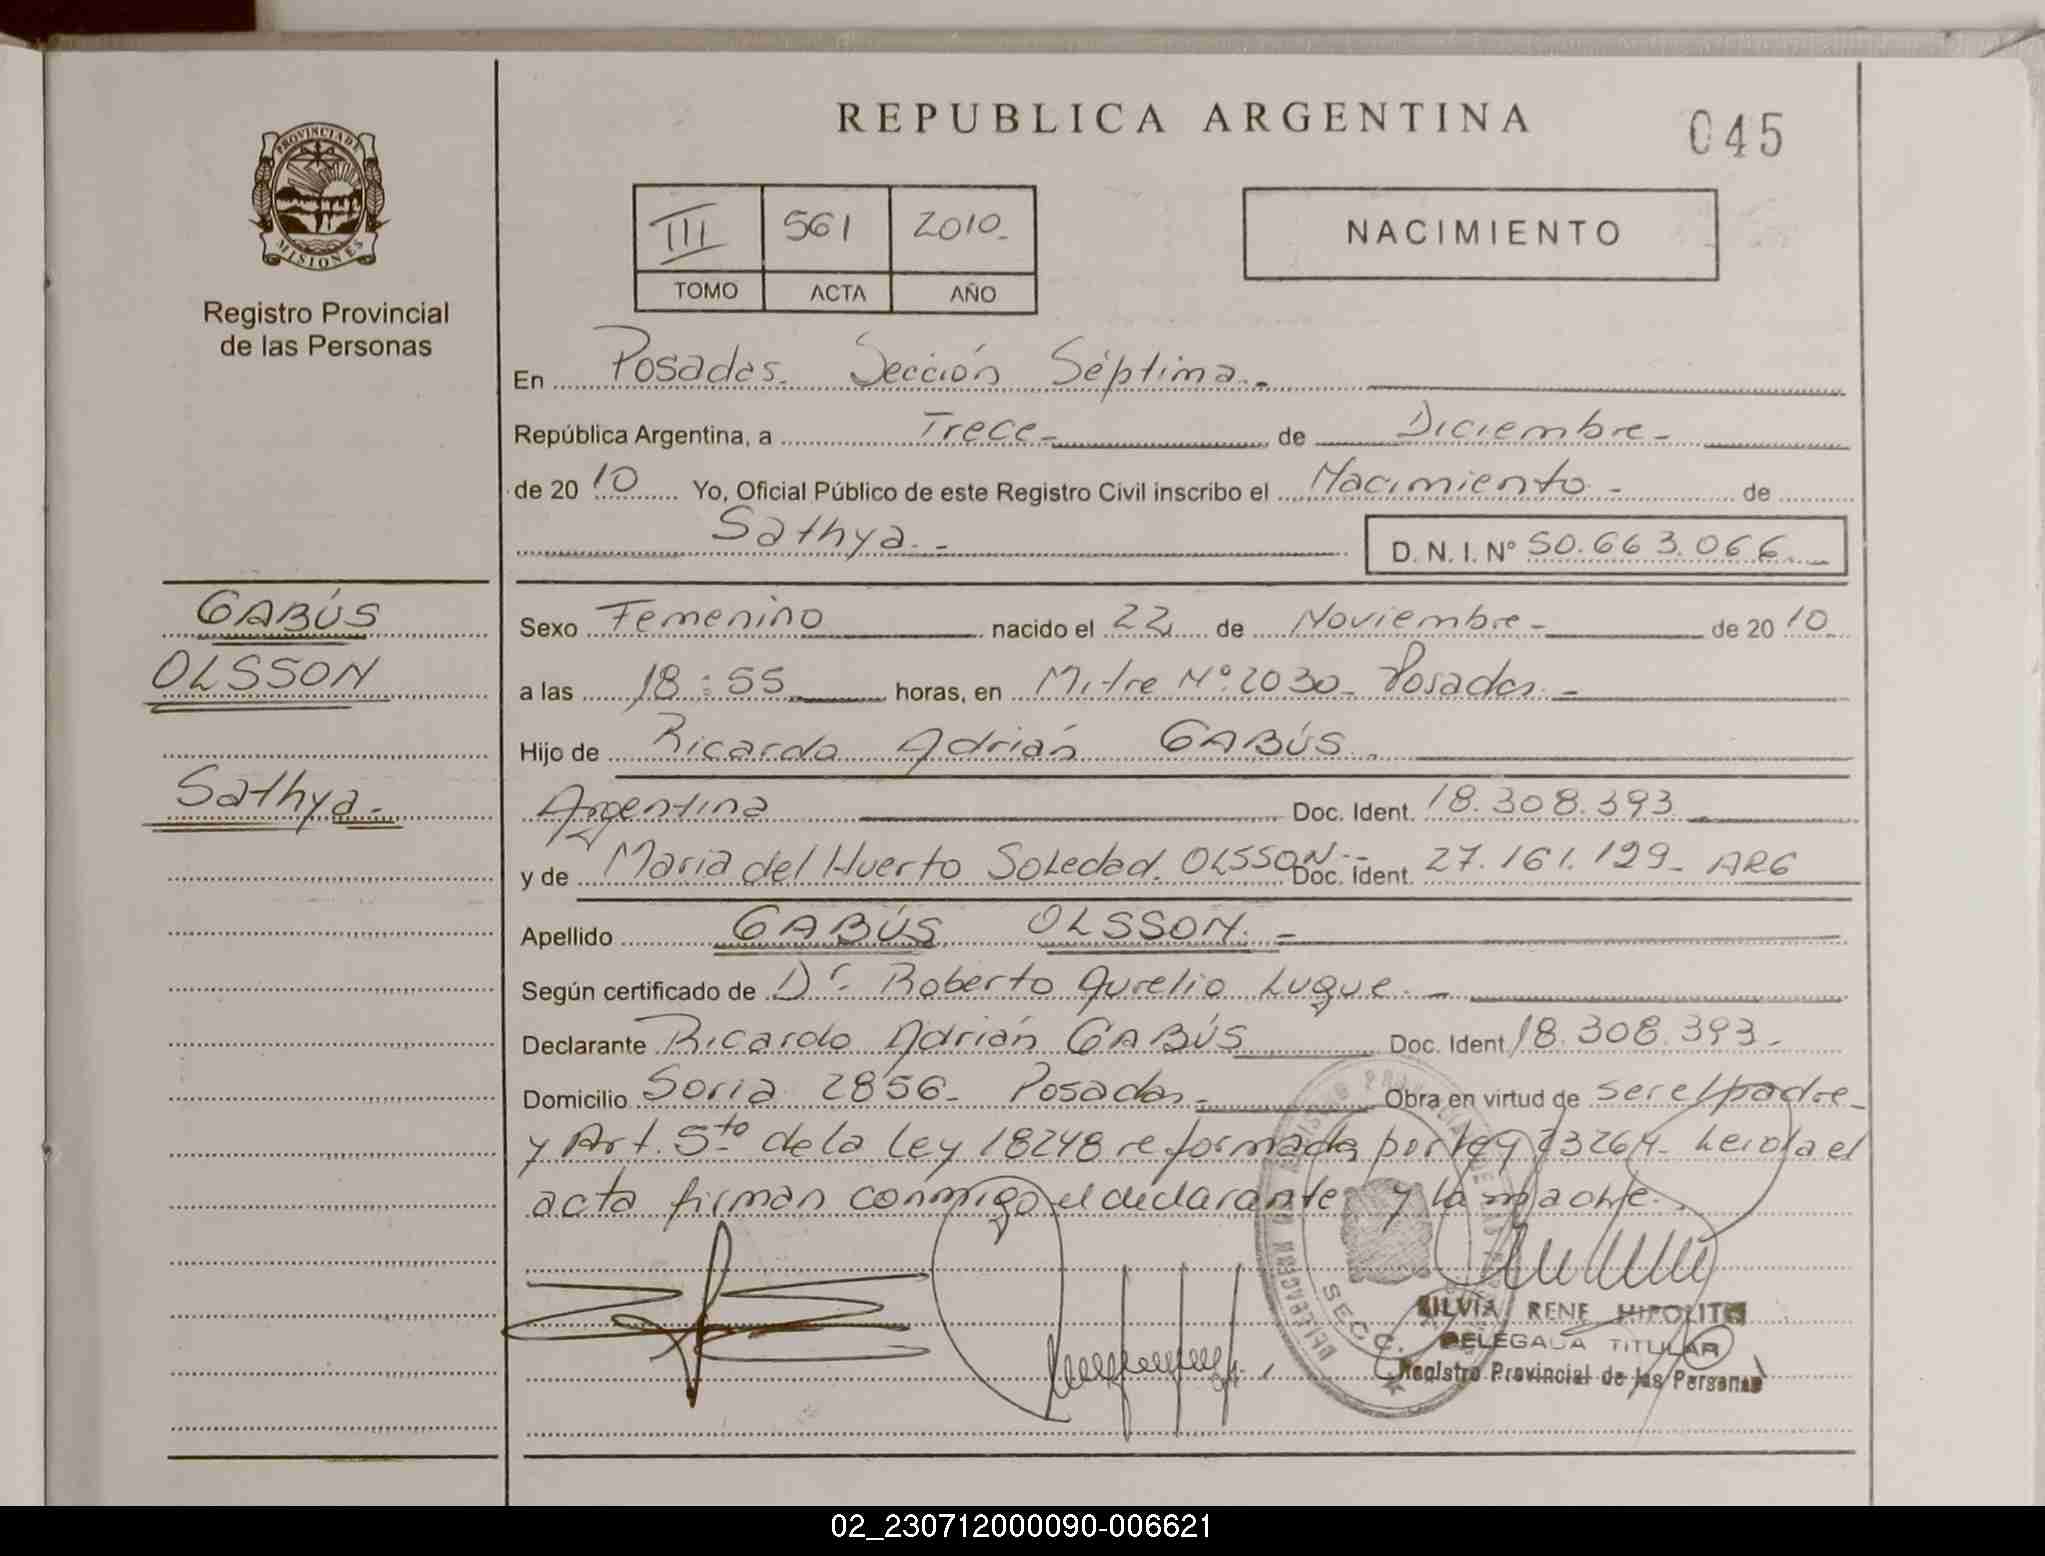 REPUBLICA ARGENTINA
045
PROVINCIA DE
MISIONES
Registro Provincial
de las Personas
III 561 2010
TOMO ACTA AÑO
NACIMIENTO
En Posadas. Sección Séptima.-
República Argentina, a Trece- de Diciembre-
de 20 10 Yo, Oficial Público de este Registro Civil inscribo el Nacimiento- de
Sathya.- D. N. I. Nº 50.663.066.-
GABÚS
OLSSON
Sathya.-
Sexo Femenino nacido el 22 de Noviembre- de 20 10
a las 18:55 horas, en Mitre Nº 2030- Posadas.-
Hijo de Ricardo Adrián GABÚS.-
Argentina Doc. Ident. 18.308.393
y de Maria del Huerto Soledad. OLSSON.- Doc. Ident. 27.161.129- ARG
Apellido GABÚS OLSSON.-
Según certificado de Dr. Roberto Aurelio Luque.-
Declarante Ricardo Adrián GABÚS Doc. Ident 18.308.393.-
Domicilio Soria 2856- Posadas.- Obra en virtud de ser el padre-
y Art. 5to de la Ley 18248 reformada por ley 23264- Leida el
acta firman conmigo el declarante y la madre.
SECC.
SILVIA RENE HIPOLITO
DELEGADA TITULAR
Registro Provincial de las Personas
02_230712000090-006621